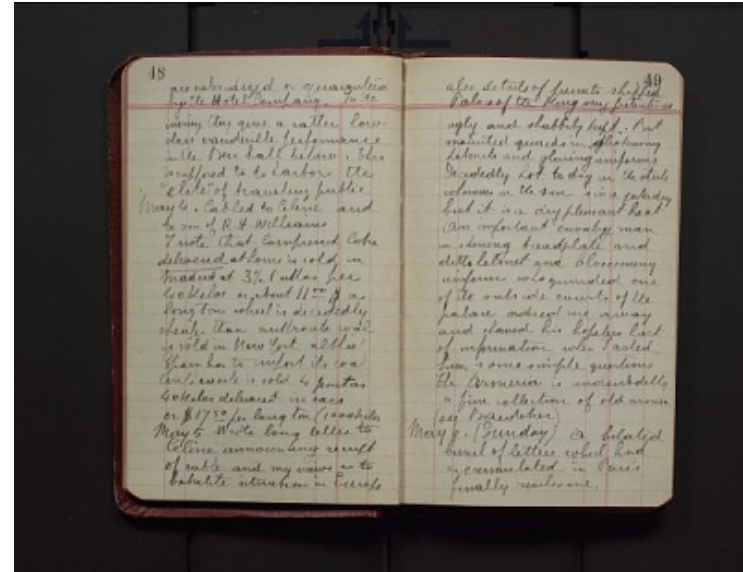 48
are subsidized or guaranteed
by the Hotel Company. In the
evening they gave a rather low
class vaudeville performance
in the Beer hall below. This
is supposed to be harbor the
"elite" of traveling public
May 4. Cabled to Celine and
to son of R H Williams
I note that Compressed Coke
delivered at home is sold in
Madrid at 3 1/2 per
40 Kilos or about 11 00 $ a
long ton which is decidedly
cheap than anthracite coal
is sold in New York altho
Spain has to import its coal
Anthracite is sold 4 pesetas
40 Kilos delivered in sacs
or $17 50 per long ton (1000 Kilos
May 5 Wrote long letter to
Celine announcing receipt
of cable and my views as to
bakelite situation in Europe
49
also details of
Palace of the King very pretentious
ugly and shabbily kept. But
mounted guards in glistening
helmets and glaring uniforms
Decidedly hot to day in the streets
whenever in the sun since yesterday
but it is a dry pleasant heat
An important cavalry man
in shining breadplate and
ditto helmet and blossoming
uniform who guarded one
of the outside courts of the
palace ordered me away
and showed his hopeless lack
of information when I asked
him some simple questions
The Armeria is undoubtedly
a fine collection of old armor
(see Baedeker)
May 6. (Sunday) A belated
bunch of letters which had
accumulated in Paris
finally reaches me.